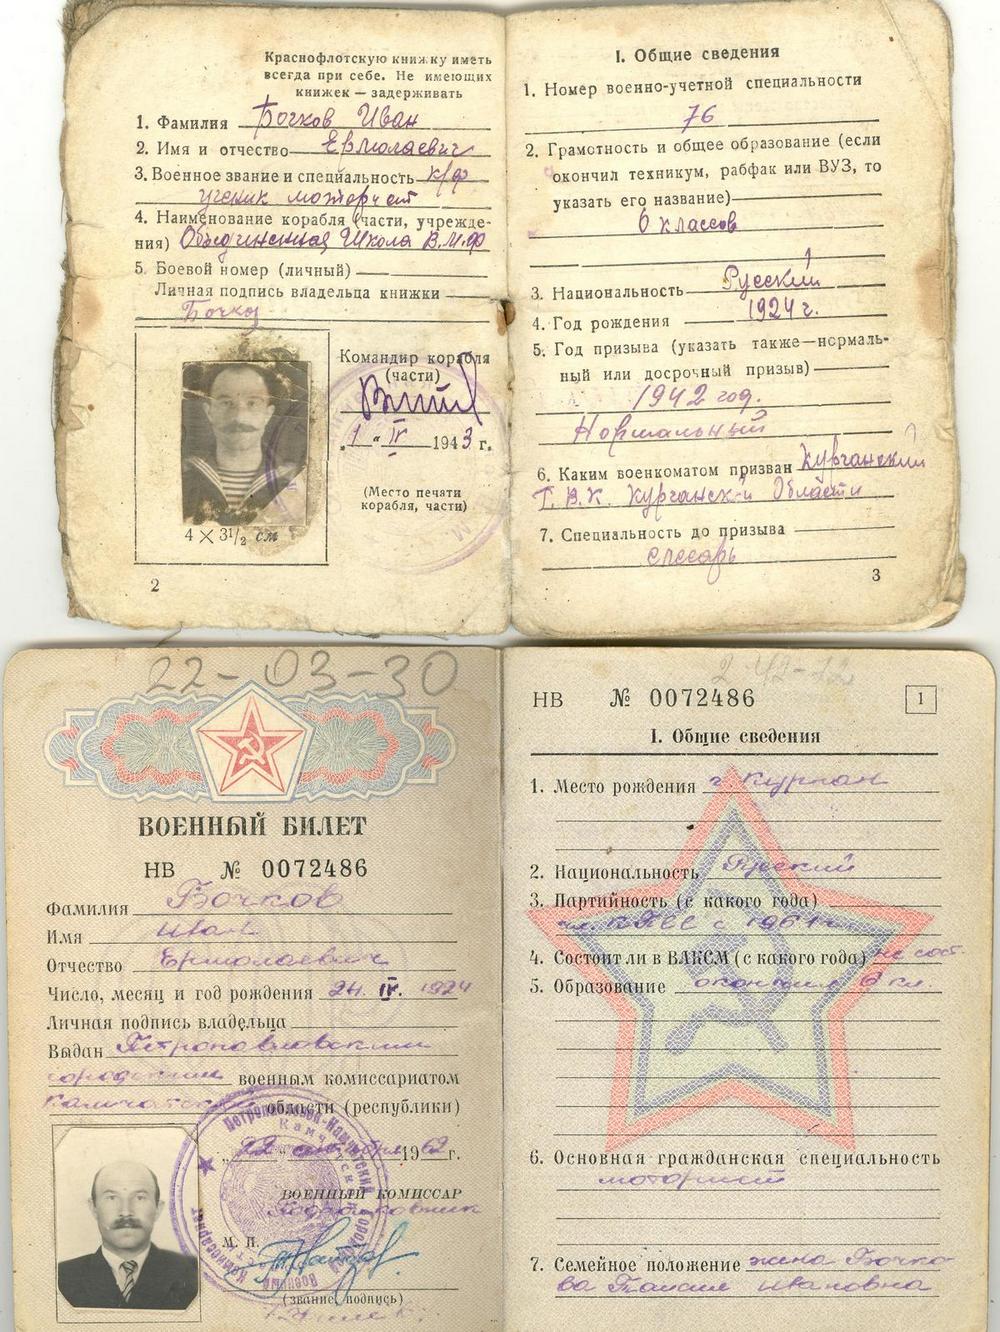 Краснофлотскую книжку иметь
всегда при себе. Не имеющих
книжек — задерживать
1. Фамилия Бочков Иван
2. Имя и отчество Ермолаевич
3. Военное звание и специальность к/ф
ученик моторист
4. Наименование корабля (части, учрежде-
ния) Объединенная Школа В.М.Ф
5. Боевой номер (личный)
Личная подпись владельца книжки
Бочков
Командир корабля
(части)
„1" IV 1943 г.
(Место печати
корабля, части)
4 × 3 1/2 см
2
I. Общие сведения
1. Номер военно-учетной специальности
76
2. Грамотность и общее образование (если
окончил техникум, рабфак или ВУЗ, то
указать его название)
6 классов
3. Национальность Русский
4. Год рождения 1924 г.
5. Год призыва (указать также—нормаль-
ный или досрочный призыв)
1942 год.
Нормальный
6. Каким военкоматом призван Курганский
Г.В.К. Курганской Области
7. Специальность до призыва
слесарь
3
22-03-30
ВОЕННЫЙ БИЛЕТ
НВ № 0072486
Фамилия Бочков
Имя Иван
Отчество Ермолаевич
Число, месяц и год рождения 24. IV. 1924
Личная подпись владельца
Выдан Петропавловским
городским военным комиссариатом
Камчатской области (республики)
„22" 1962 г.
ВОЕННЫЙ КОМИССАР
М. П.
(звание, подпись)
НВ № 0072486
1
I. Общие сведения
1. Место рождения г. Курган
2. Национальность Русский
3. Партийность (с какого года)
чл. КПСС с 1961 г.
4. Состоит ли в ВЛКСМ (с какого года) не сост.
5. Образование окончил 6 кл.
6. Основная гражданская специальность
моторист
7. Семейное положение жена Бочко-
ва Ивановна